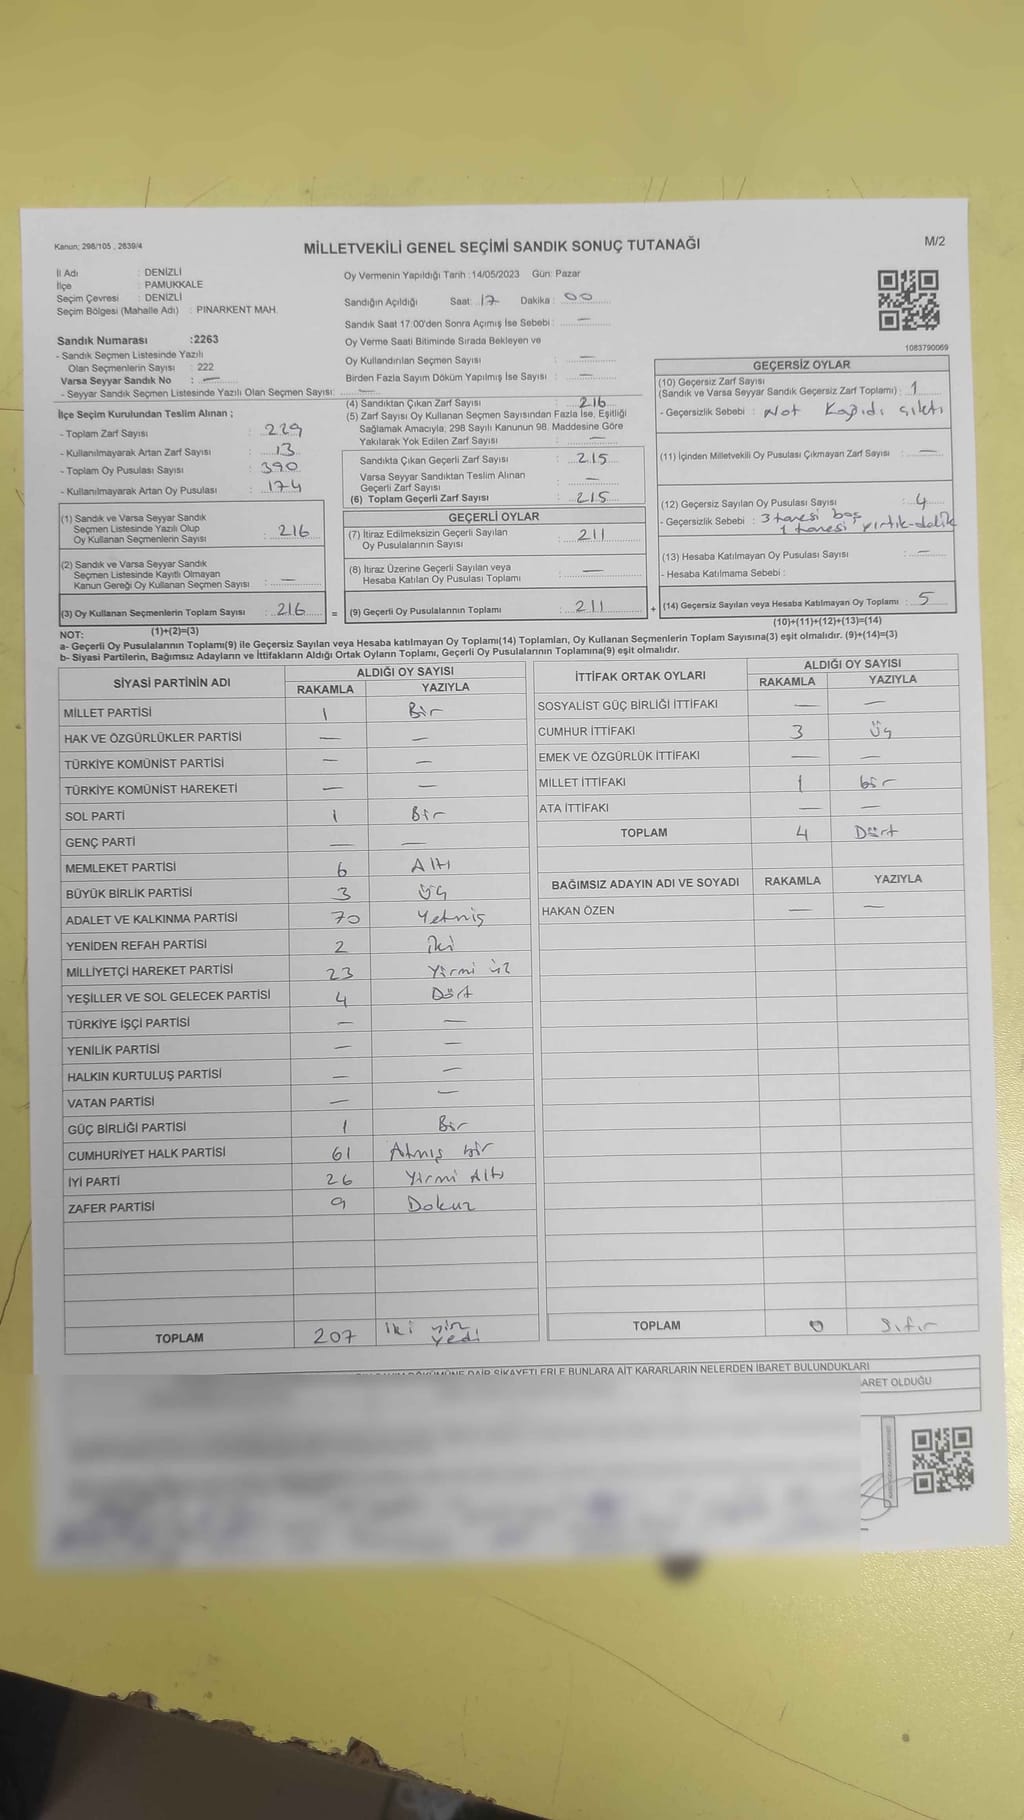 Kanun: 298/105 , 2839/4
MİLLETVEKİLİ GENEL SEÇİMİ SANDIK SONUÇ TUTANAĞI
M/2
İl Adı : DENİZLİ
İlçe : PAMUKKALE
Seçim Çevresi : DENİZLİ
Seçim Bölgesi (Mahalle Adı) : PINARKENT MAH.
Sandık Numarası :2263
- Sandık Seçmen Listesinde Yazılı
Olan Seçmenlerin Sayısı : 222
Varsa Seyyar Sandık No : —
- Seyyar Sandık Seçmen Listesinde Yazılı Olan Seçmen Sayısı: —
Oy Vermenin Yapıldığı Tarih :14/05/2023 Gün: Pazar
Sandığın Açıldığı Saat: 17 Dakika : 00
Sandık Saat 17.00'den Sonra Açımış İse Sebebi : —
Oy Verme Saati Bitiminde Sırada Bekleyen ve
Oy Kullandırılan Seçmen Sayısı : —
Birden Fazla Sayım Döküm Yapılmış İse Sayısı : —
1083790069
İlçe Seçim Kurulundan Teslim Alınan ;
- Toplam Zarf Sayısı : 229
- Kullanılmayarak Artan Zarf Sayısı : 13
- Toplam Oy Pusulası Sayısı : 390
- Kullanılmayarak Artan Oy Pusulası : 174
(1) Sandık ve Varsa Seyyar Sandık
Seçmen Listesinde Yazılı Olup
Oy Kullanan Seçmenlerin Sayısı : 216
(2) Sandık ve Varsa Seyyar Sandık
Seçmen Listesinde Kayıtlı Olmayan
Kanun Gereği Oy Kullanan Seçmen Sayısı : —
(3) Oy Kullanan Seçmenlerin Toplam Sayısı : 216 =
(1)+(2)=(3)
(4) Sandıktan Çıkan Zarf Sayısı : 216
(5) Zarf Sayısı Oy Kullanan Seçmen Sayısından Fazla İse, Eşitliği
Sağlamak Amacıyla; 298 Sayılı Kanunun 98. Maddesine Göre
Yakılarak Yok Edilen Zarf Sayısı : —
Sandıkta Çıkan Geçerli Zarf Sayısı : 215
Varsa Seyyar Sandıktan Teslim Alınan
Geçerli Zarf Sayısı : —
(6) Toplam Geçerli Zarf Sayısı : 215
GEÇERLİ OYLAR
(7) İtiraz Edilmeksizin Geçerli Sayılan
Oy Pusulalarının Sayısı : 211
(8) İtiraz Üzerine Geçerli Sayılan veya
Hesaba Katılan Oy Pusulası Toplamı : —
(9) Geçerli Oy Pusulalarının Toplamı : 211 +
GEÇERSİZ OYLAR
(10) Geçersiz Zarf Sayısı
(Sandık ve Varsa Seyyar Sandık Geçersiz Zarf Toplamı) : 1
- Geçersizlik Sebebi : Not Kağıdı çıktı
(11) İçinden Milletvekili Oy Pusulası Çıkmayan Zarf Sayısı : —
(12) Geçersiz Sayılan Oy Pusulası Sayısı : 4
- Geçersizlik Sebebi : 3 tanesi boş
1 tanesi yırtık-delik
(13) Hesaba Katılmayan Oy Pusulası Sayısı : —
- Hesaba Katılmama Sebebi :
(14) Geçersiz Sayılan veya Hesaba Katılmayan Oy Toplamı : 5
(10)+(11)+(12)+(13)=(14)
NOT:
a- Geçerli Oy Pusulalarının Toplamı(9) ile Geçersiz Sayılan veya Hesaba katılmayan Oy Toplamı(14) Toplamları, Oy Kullanan Seçmenlerin Toplam Sayısına(3) eşit olmalıdır. (9)+(14)=(3)
b- Siyasi Partilerin, Bağımsız Adayların ve İttifakların Aldığı Ortak Oyların Toplamı, Geçerli Oy Pusulalarının Toplamına(9) eşit olmalıdır.
SİYASİ PARTİNİN ADI ALDIĞI OY SAYISI
RAKAMLA YAZIYLA
MİLLET PARTİSİ 1 Bir
HAK VE ÖZGÜRLÜKLER PARTİSİ — —
TÜRKİYE KOMÜNİST PARTİSİ — —
TÜRKİYE KOMÜNİST HAREKETİ — —
SOL PARTİ 1 Bir
GENÇ PARTİ — —
MEMLEKET PARTİSİ 6 Altı
BÜYÜK BİRLİK PARTİSİ 3 Üç
ADALET VE KALKINMA PARTİSİ 70 Yetmiş
YENİDEN REFAH PARTİSİ 2 iki
MİLLİYETÇİ HAREKET PARTİSİ 23 Yirmi üç
YEŞİLLER VE SOL GELECEK PARTİSİ 4 Dört
TÜRKİYE İŞÇİ PARTİSİ — —
YENİLİK PARTİSİ — —
HALKIN KURTULUŞ PARTİSİ — —
VATAN PARTİSİ — —
GÜÇ BİRLİĞİ PARTİSİ 1 Bir
CUMHURİYET HALK PARTİSİ 61 Atmış bir
İYİ PARTİ 26 Yirmi Altı
ZAFER PARTİSİ 9 Dokuz
TOPLAM 207 iki yüz yedi
İTTİFAK ORTAK OYLARI ALDIĞI OY SAYISI
RAKAMLA YAZIYLA
SOSYALİST GÜÇ BİRLİĞİ İTTİFAKI — —
CUMHUR İTTİFAKI 3 Üç
EMEK VE ÖZGÜRLÜK İTTİFAKI — —
MİLLET İTTİFAKI 1 bir
ATA İTTİFAKI — —
TOPLAM 4 Dört
BAĞIMSIZ ADAYIN ADI VE SOYADI RAKAMLA YAZIYLA
HAKAN ÖZEN — —
TOPLAM 0 Sıfır
DÖKÜMÜNE DAİR ŞİKAYETLERLE BUNLARA AİT KARARLARIN NELERDEN İBARET BULUNDUKLARI
ARET OLDUĞU